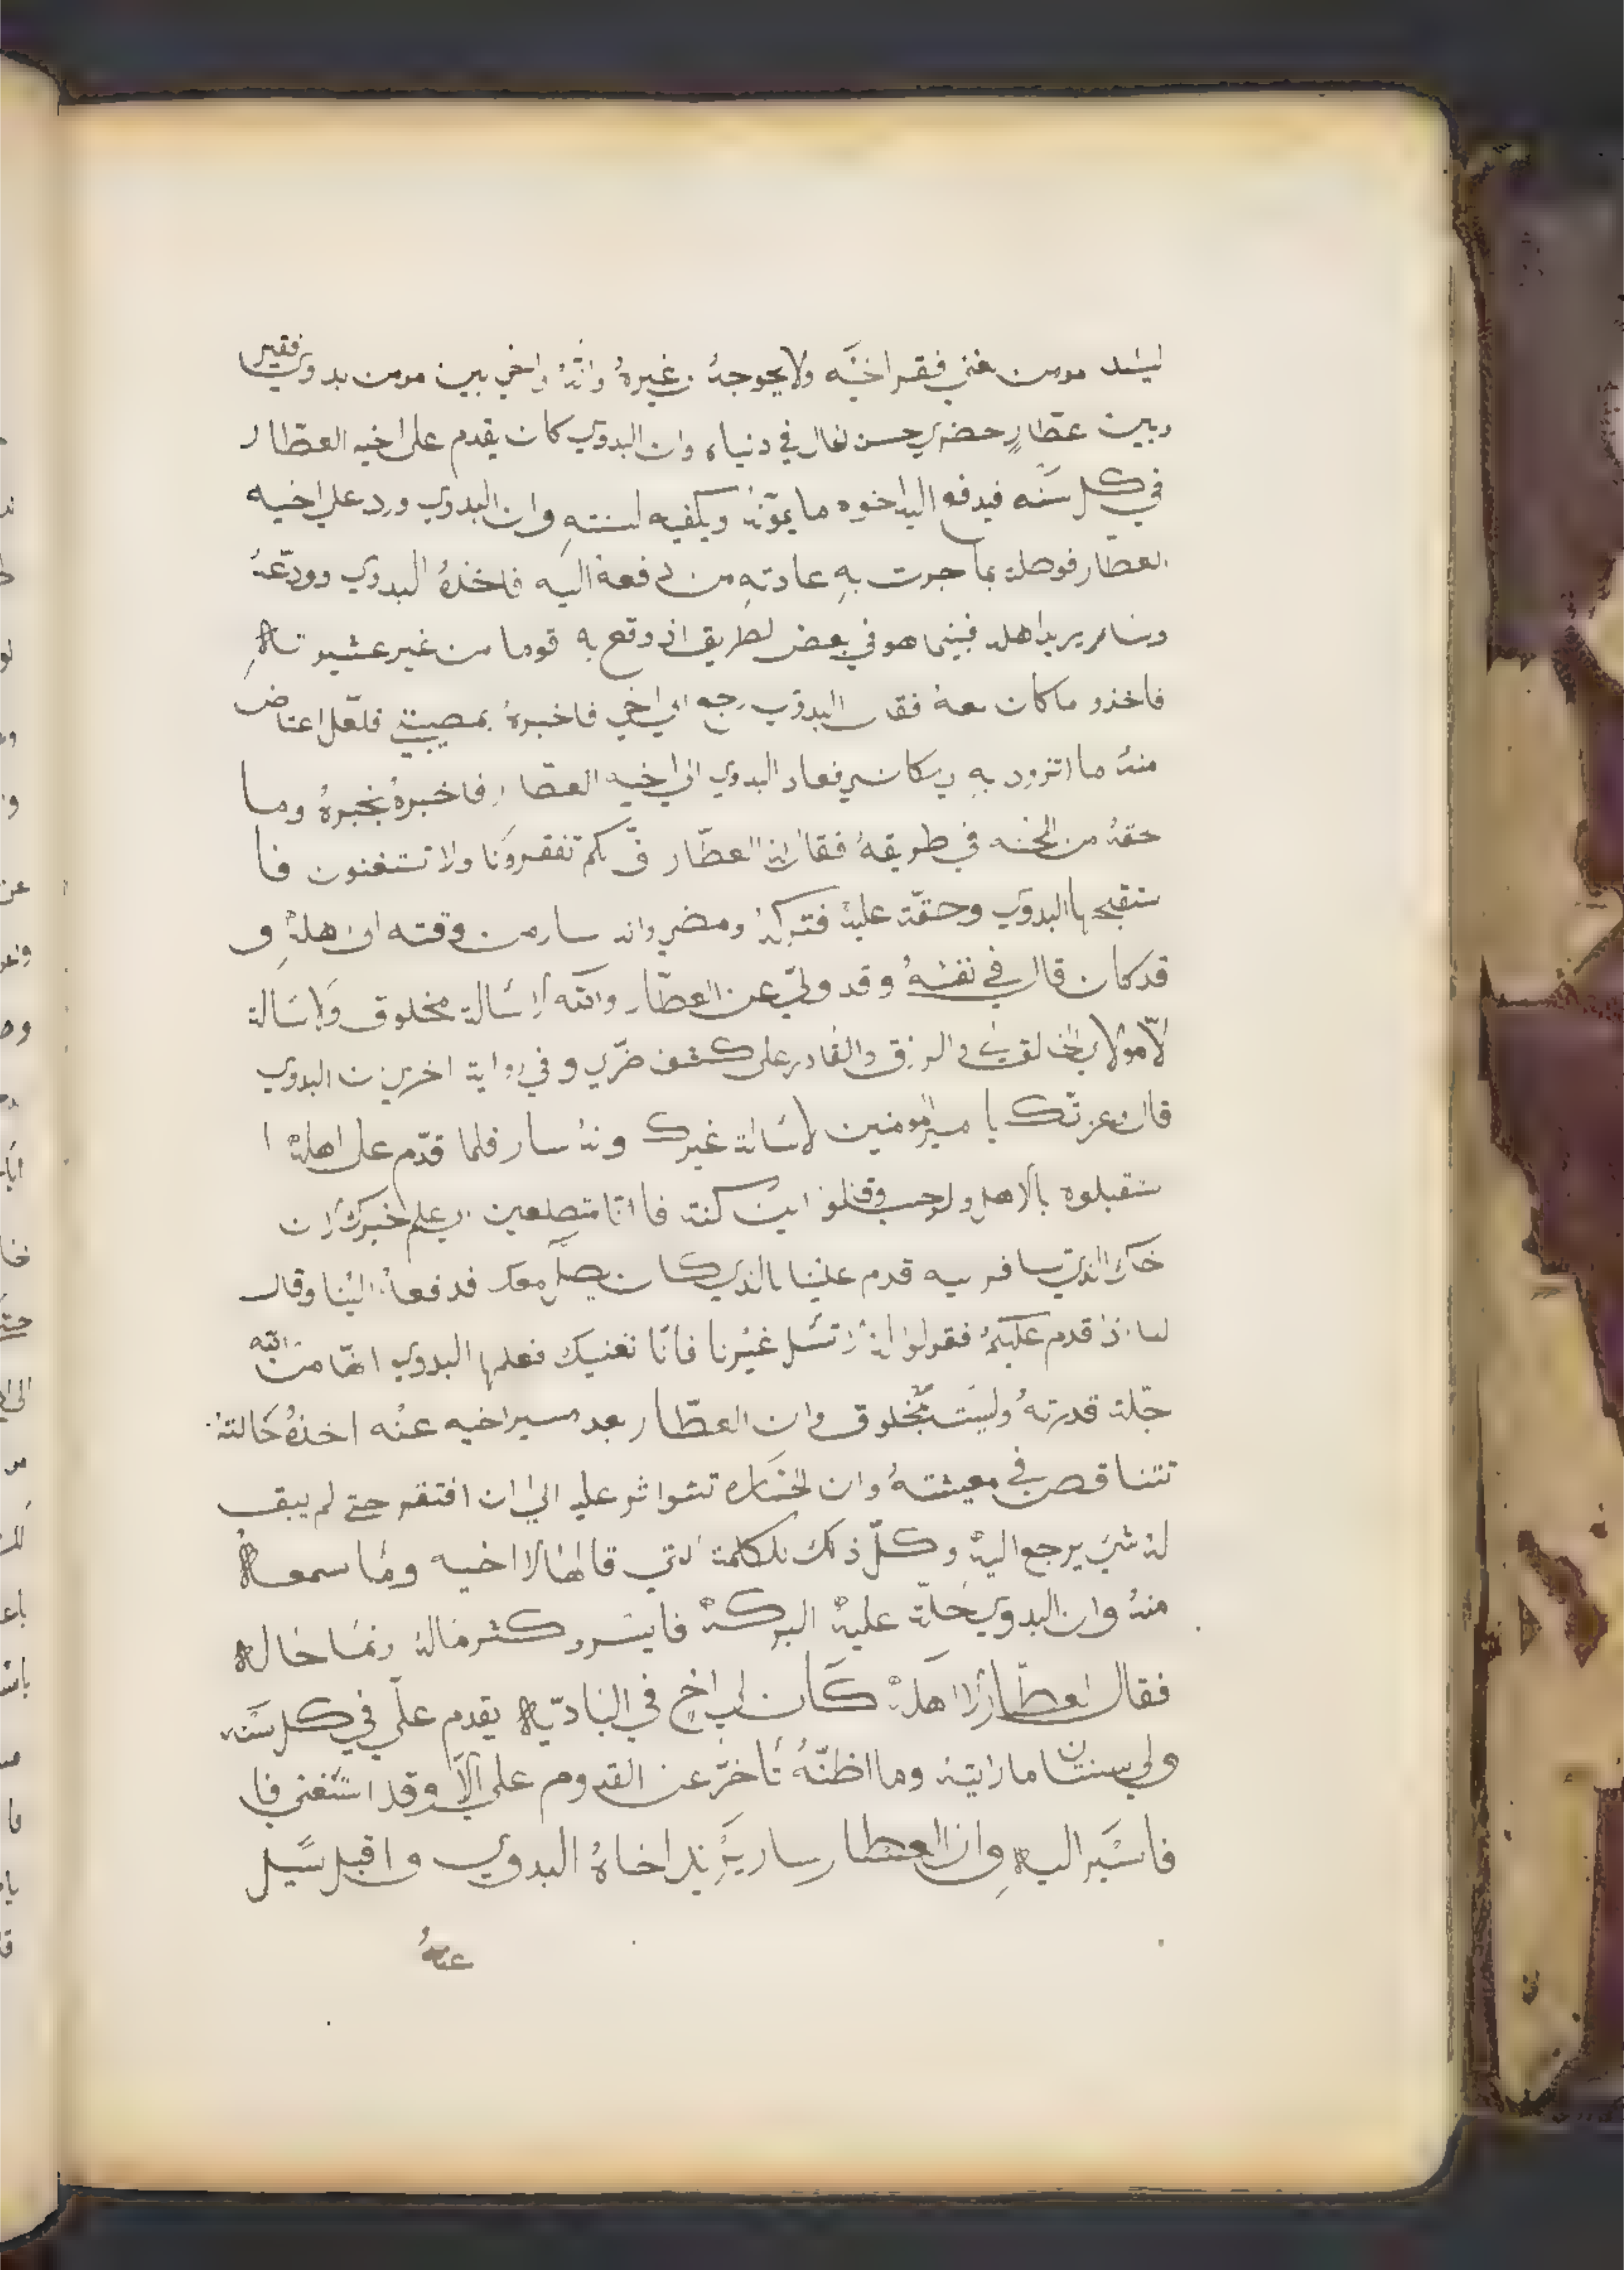 ليسد مومن غني فقر اخيه ولا يحوجه غيره وانه واخي بين مومن بدوي فقير
وبين عطار حضري حسن الحال في دنياه وان البدوي كان يقدم على اخيه العطار
في كل سنه فيدفع اليه اخوه ما يمونه ويكفيه لسنته وان البدوي ورد علي اخيه
العطار فوصله بما جرت به عادته من دفعه اليه فاخذه البدوي وودعه
وسار يريد اهله فبينما هو في بعض الطريق اذ وقع به قوما من غير عشيرته
فاخذو ما كان معه فقال البدوي ارجع الي اخي فاخبره بمصيبتي فلعل اعتاض
منه ما اتزود به فعاد البدوي الي اخيه العطار فاخبره بخبره وما
لحقه من المحنه في طريقه فقال له العطار كم تفقرونا ولا تستغنون فا
ستقبحها البدوي وحقة عليه فتركه ومضي وانه سار من وقته الى اهله و
قد كان قال في نفسه وقد ولي عن العطار والله لا سالة مخلوق ولا سالة
الا مولاي الخالق والرازق والقادر على كشف ضري وفي رواية اخري ان البدوي
قال وعزتك يا امير المومنين لا سالة غيرك وانه سار فلما قدم على اهله ا
ستقبلوه بالاهل والرحب وقالو اين كنة فا اننا متطلعين الي علم خبرك لان
اخاك الذي تسافر اليه قدم علينا بالذي كان يصل معك فدفعه الينا وقال
لنا اذا قدم عليكم فقولوا له لا تسل غيرنا فانا نغنيك فعلمها البدوي انها من الله
جلة قدرته وليست بمخلوق وان العطار بعد مسير اخيه عنه اخذة حالته
تتناقص في معيشته وان الخساره تتواتر عليه الي ان افتقر حتي لم يبق
له شي يرجع اليه وكل ذلك للكلمة التي قالها لا اخيه وما سمعه
منه وان البدوي حلة عليه البركة فايسر وكثر ماله ونما حاله
فقال العطار لا اهله كان لي اخ في الباديه يقدم علي في كل سنه
ولي سنتان ما رايته وما اظنه تاخر عن القدوم علي الا وقد استغني فا
فاسير اليه وان العطار سار يريد اخاه البدوي واقبل يسيل
عنه